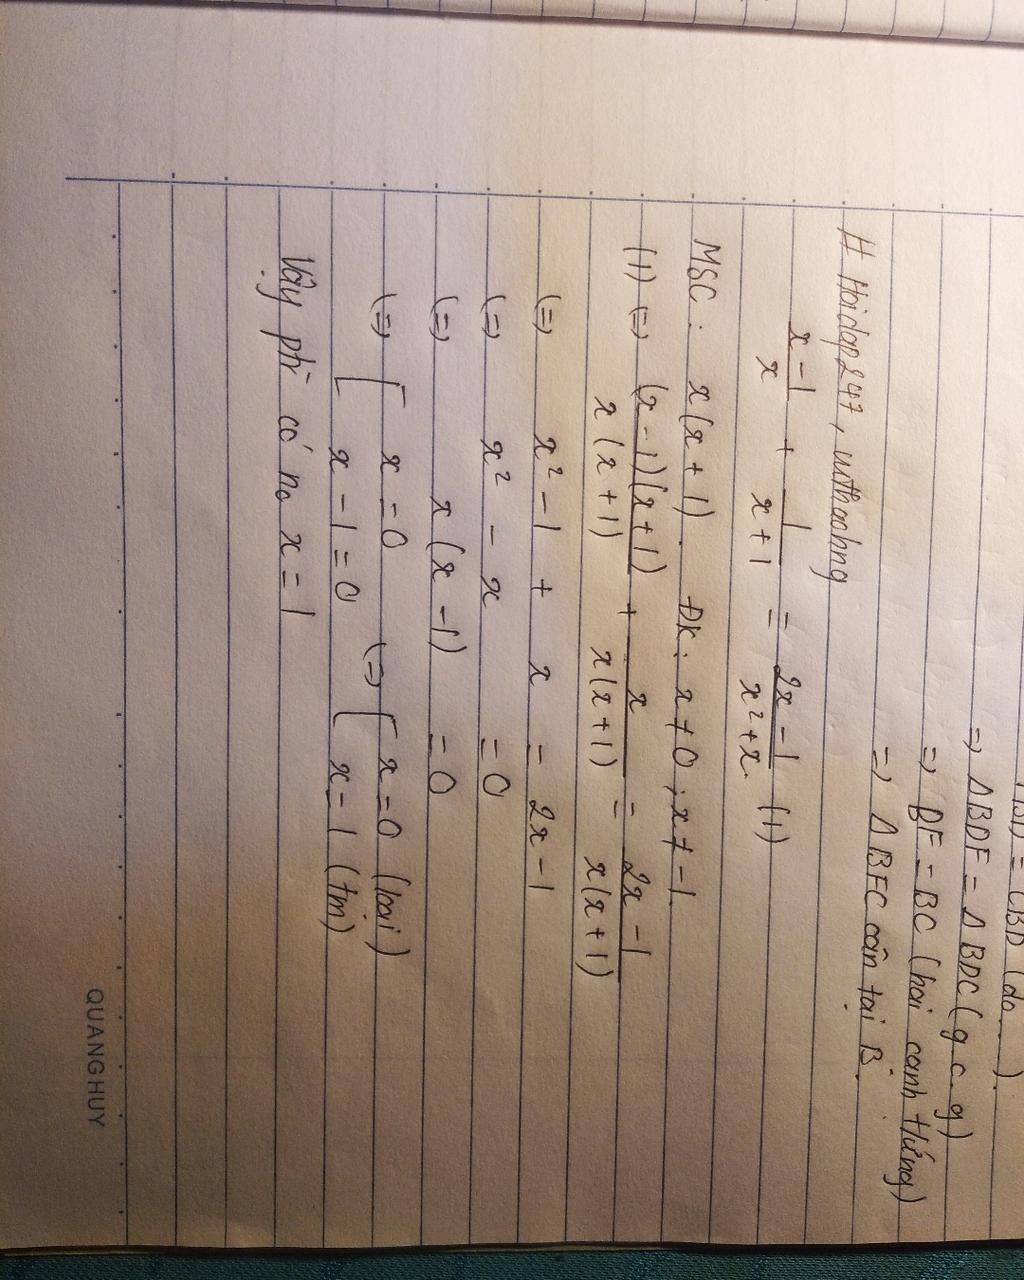 = CBD (do ...)
=> ΔBDF = ΔBDC (g.c.g)
=> BF = BC (hai cạnh t/ứng)
=> ΔBFC cân tại B.
# Hoidap247,
(x - 1)/x + 1/(x + 1) = (2x - 1)/(x² + x) (1)
MSC: x(x + 1). ĐK: x ≠ 0; x ≠ -1
(1) (=) (x - 1)(x + 1)/x(x + 1) + x/x(x + 1) = (2x - 1)/x(x + 1)
(=) x² - 1 + x = 2x - 1
(=) x² - x = 0
(=) x(x - 1) = 0
(=) [ x = 0 (=) [ x = 0 (loại)
x - 1 = 0 x = 1 (tm)
Vậy ptr có no x = 1
QUANG HUY